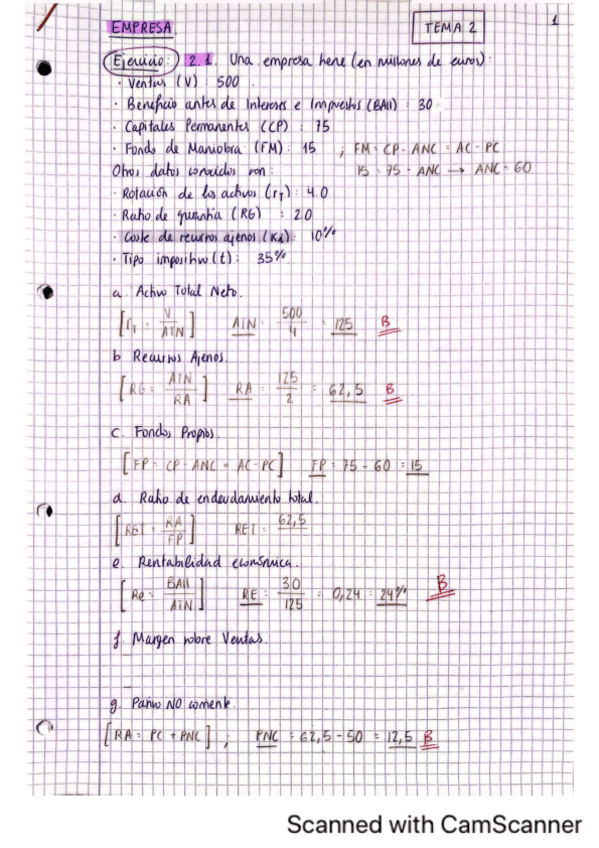 1
EMPRESA TEMA 2
Ejercicio: 2.1. Una empresa tiene (en millones de euros):
· Ventas (V) : 500
· Beneficio antes de Intereses e Impuestos (BAII) : 30
· Capitales Permanentes (CP) : 75
· Fondo de Maniobra (FM) : 15 ; FM = CP - ANC = AC - PC
Otros datos conocidos son : 15 = 75 - ANC → ANC = 60
· Rotación de los activos (rT) : 4.0
· Ratio de garantía (RG) : 2.0
· Coste de recursos ajenos (Kd) : 10%
· Tipo impositivo (t) : 35%
a. Activo Total Neto.
[rT = V / ATN] ATN = 500 / 4 = 125 B
b Recursos Ajenos.
[RG = ATN / RA] RA = 125 / 2 = 62,5 B
c. Fondos Propios.
[FP = CP - ANC = AC - PC] FP = 75 - 60 = 15
d. Ratio de endeudamiento total.
[RET = RA / FP] RET = 62,5
e. Rentabilidad económica.
[Re = BAII / ATN] RE = 30 / 125 = 0,24 = 24% B
f. Margen sobre Ventas.
g. Pasivo NO corriente.
[RA = PC + PNC] ; PNC = 62,5 - 50 = 12,5 B
Scanned with CamScanner